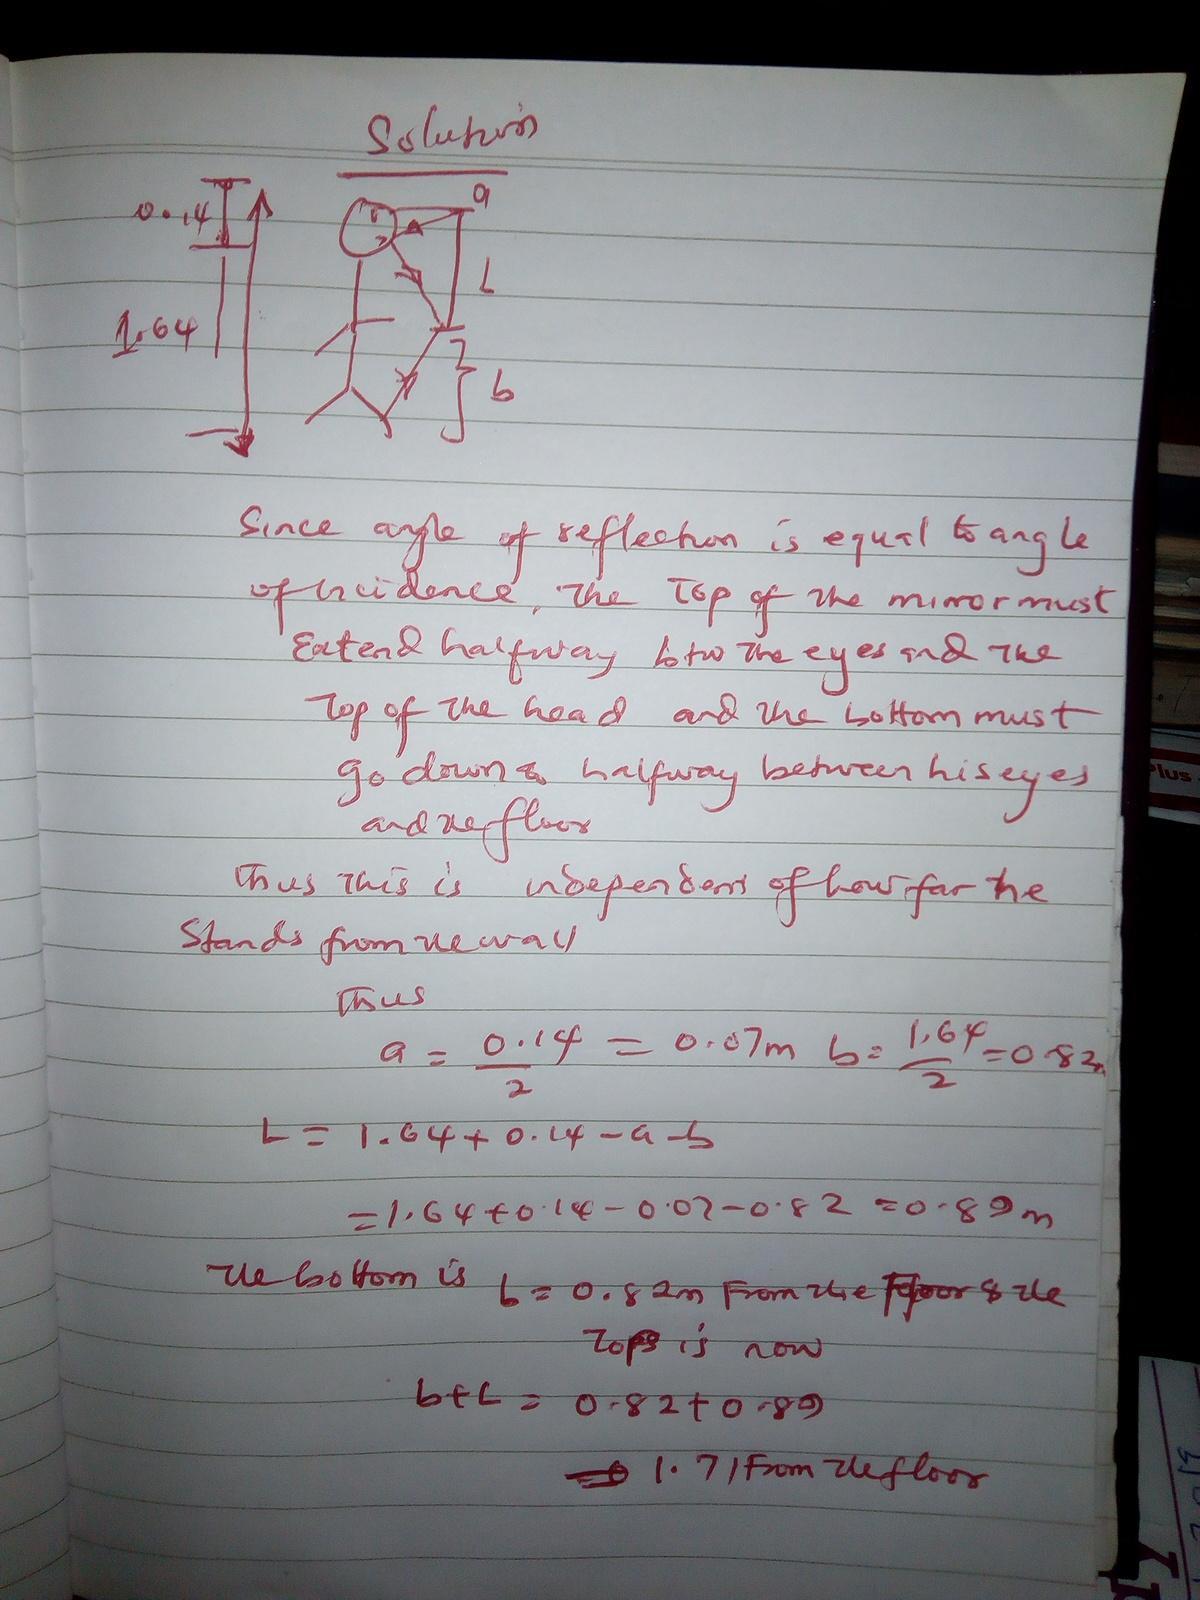 Solution
0.14
a
L
1.64
b
Since angle of reflection is equal to angle
of incidence, the Top of the mirror must
Extend halfway btw the eyes and the
Top of the head and the bottom must
go down to halfway between his eyes
and the floor
Thus This is independent of how far the
Stands from the wall
Thus
a = 0.14/2 = 0.07m b = 1.64/2 = 0.82m
L = 1.64 + 0.14 - a - b
= 1.64 + 0.14 - 0.07 - 0.82 = 0.89m
The bottom is b = 0.82m From the floor & the
Tops is now
b + L = 0.82 + 0.89
⇒ 1.71 From the floor
Plus
2019